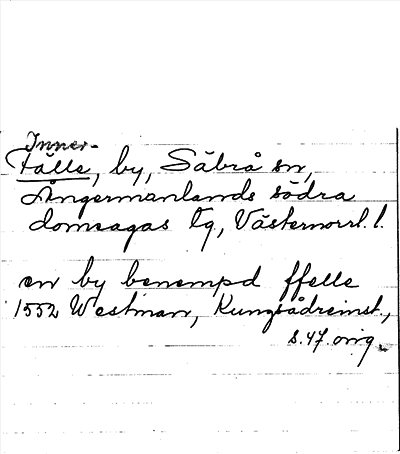 Inner-
Fälle, by, Säbrå sn,
Ångermanlands södra
domsagas tg, Västernorrl. l.
en by benempd ffelle
1552 Westman, Kungsådreinst.,
s. 47. orig.